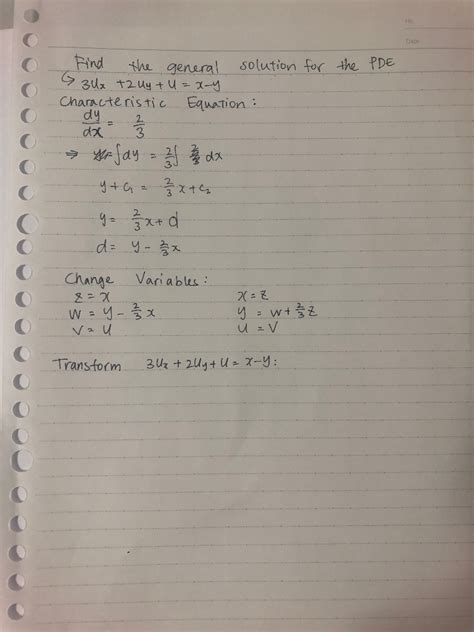 No.
Date
Find the general solution for the PDE
↳ 3Ux + 2Uy + U = x-y
Characteristic Equation :
dy/dx = 2/3
⇒ ∫dy = 2/3 ∫ dx
y + c₁ = 2/3 x + c₂
y = 2/3 x + d
d = y - 2/3 x
Change Variables :
z = x x = z
w = y - 2/3 x y = w + 2/3 z
v = u u = v
Transform 3Ux + 2Uy + U = x-y :